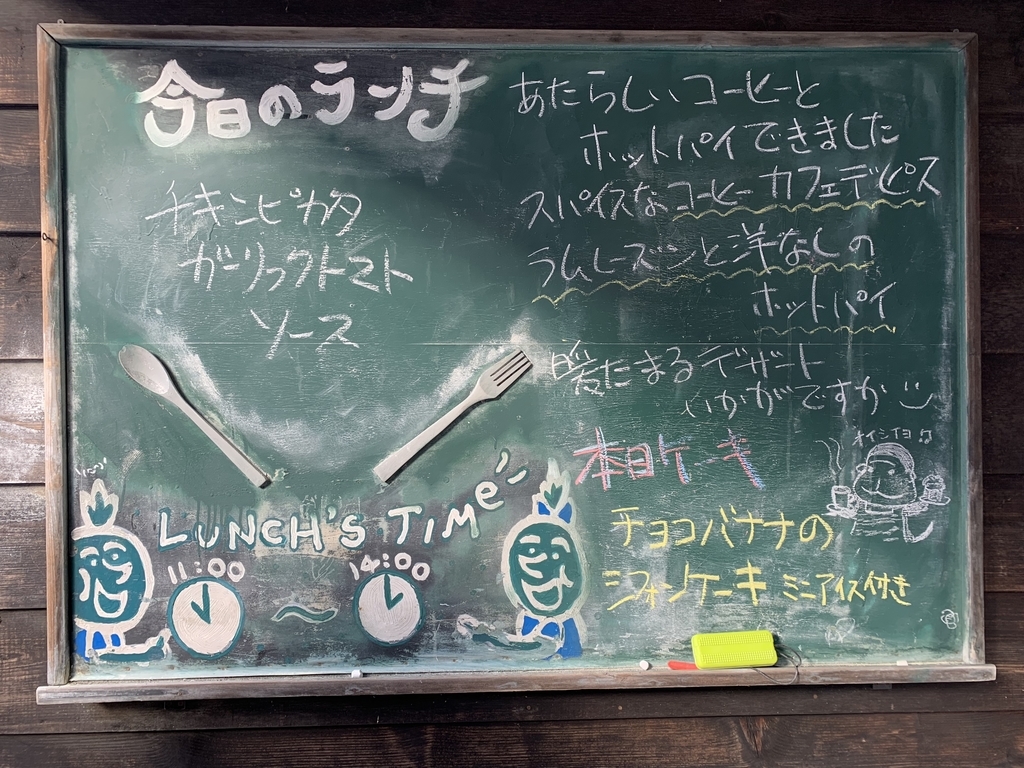 今日のランチ
チキンピカタ
ガーリックトマト
ソース
LUNCH'S TIMe
11:00
14:00
あたらしいコーヒーと
ホットパイできました
スパイスなコーヒーカフェデピス
ラムレーズンと洋なしの
ホットパイ
暖たまるデザート
いかがですか
オイシイヨ♫
本日ケーキ
チョコバナナの
シフォンケーキ ミニアイス付き